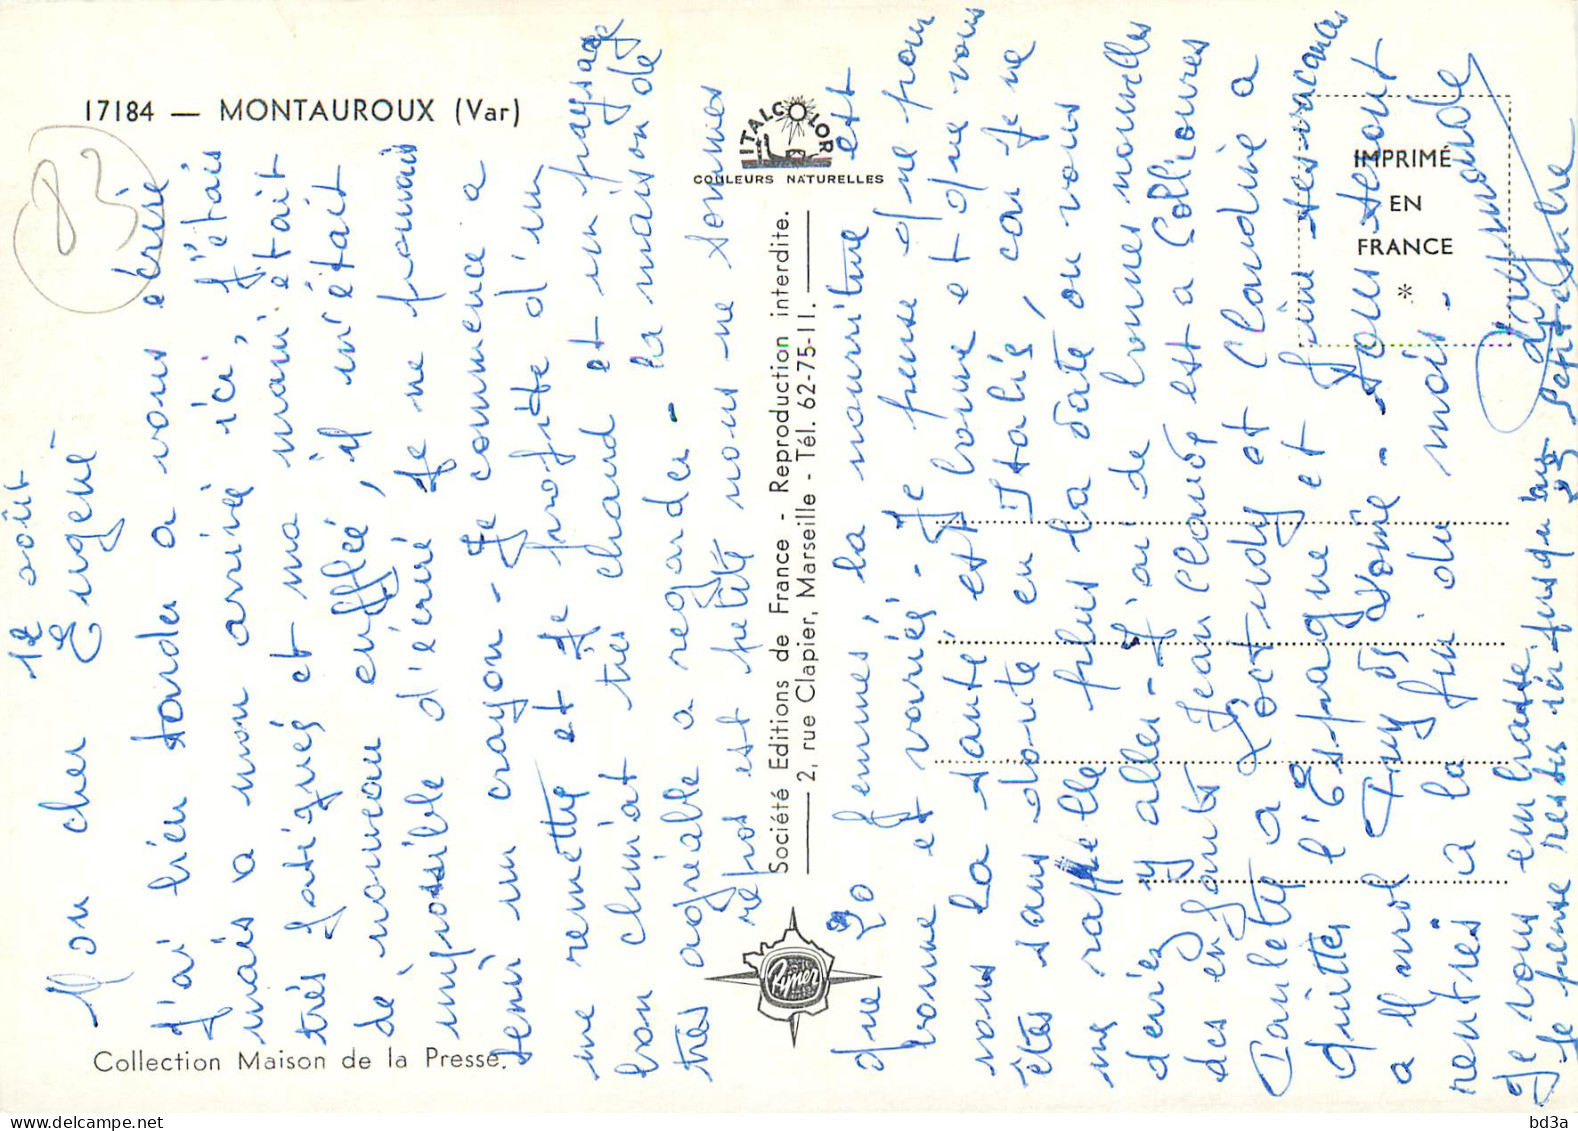 17184 — MONTAUROUX (Var)
ITALCOLOR
COULEURS NATURELLES
IMPRIMÉ
EN
FRANCE
*
Société Editions de France - Reproduction interdite.
2, rue Clapier, Marseille - Tél. 62-75-11.
Collection Maison de la Presse.
85
12 août
Mon cher Eugène -
J'ai bien tardé a vous écrire
mais a mon arrivée ici, j'étais
très fatiguée et ma main était
de nouveau enfflée, il m'était
impossible d'écrire je ne pouvais
tenir un crayon - Je commence a
me remettre et je profite d'un
bon climat très chaud et un paysage
très agréable a regarder - la maison de
repos est petite nous ne sommes
que 20 femmes, la nourriture est
bonne et variée - Je pense que pour
vous la santé est bonne et que vous
êtes sans doute en Italie, car je ne
me rappelle plus la date ou vous
deviez y aller - J'ai de bonnes nouvelles
des enfants Jean Claude est a Collioures
Paulette a Loctudy et Claudine a
quitter l'Espagne et fini ses vacances
a Guy de - tous seront
rentres a la fin du mois -
Je vous embrasse Raymonde
Je pense rester ici jusqu'au 25 Septembre
bd3a